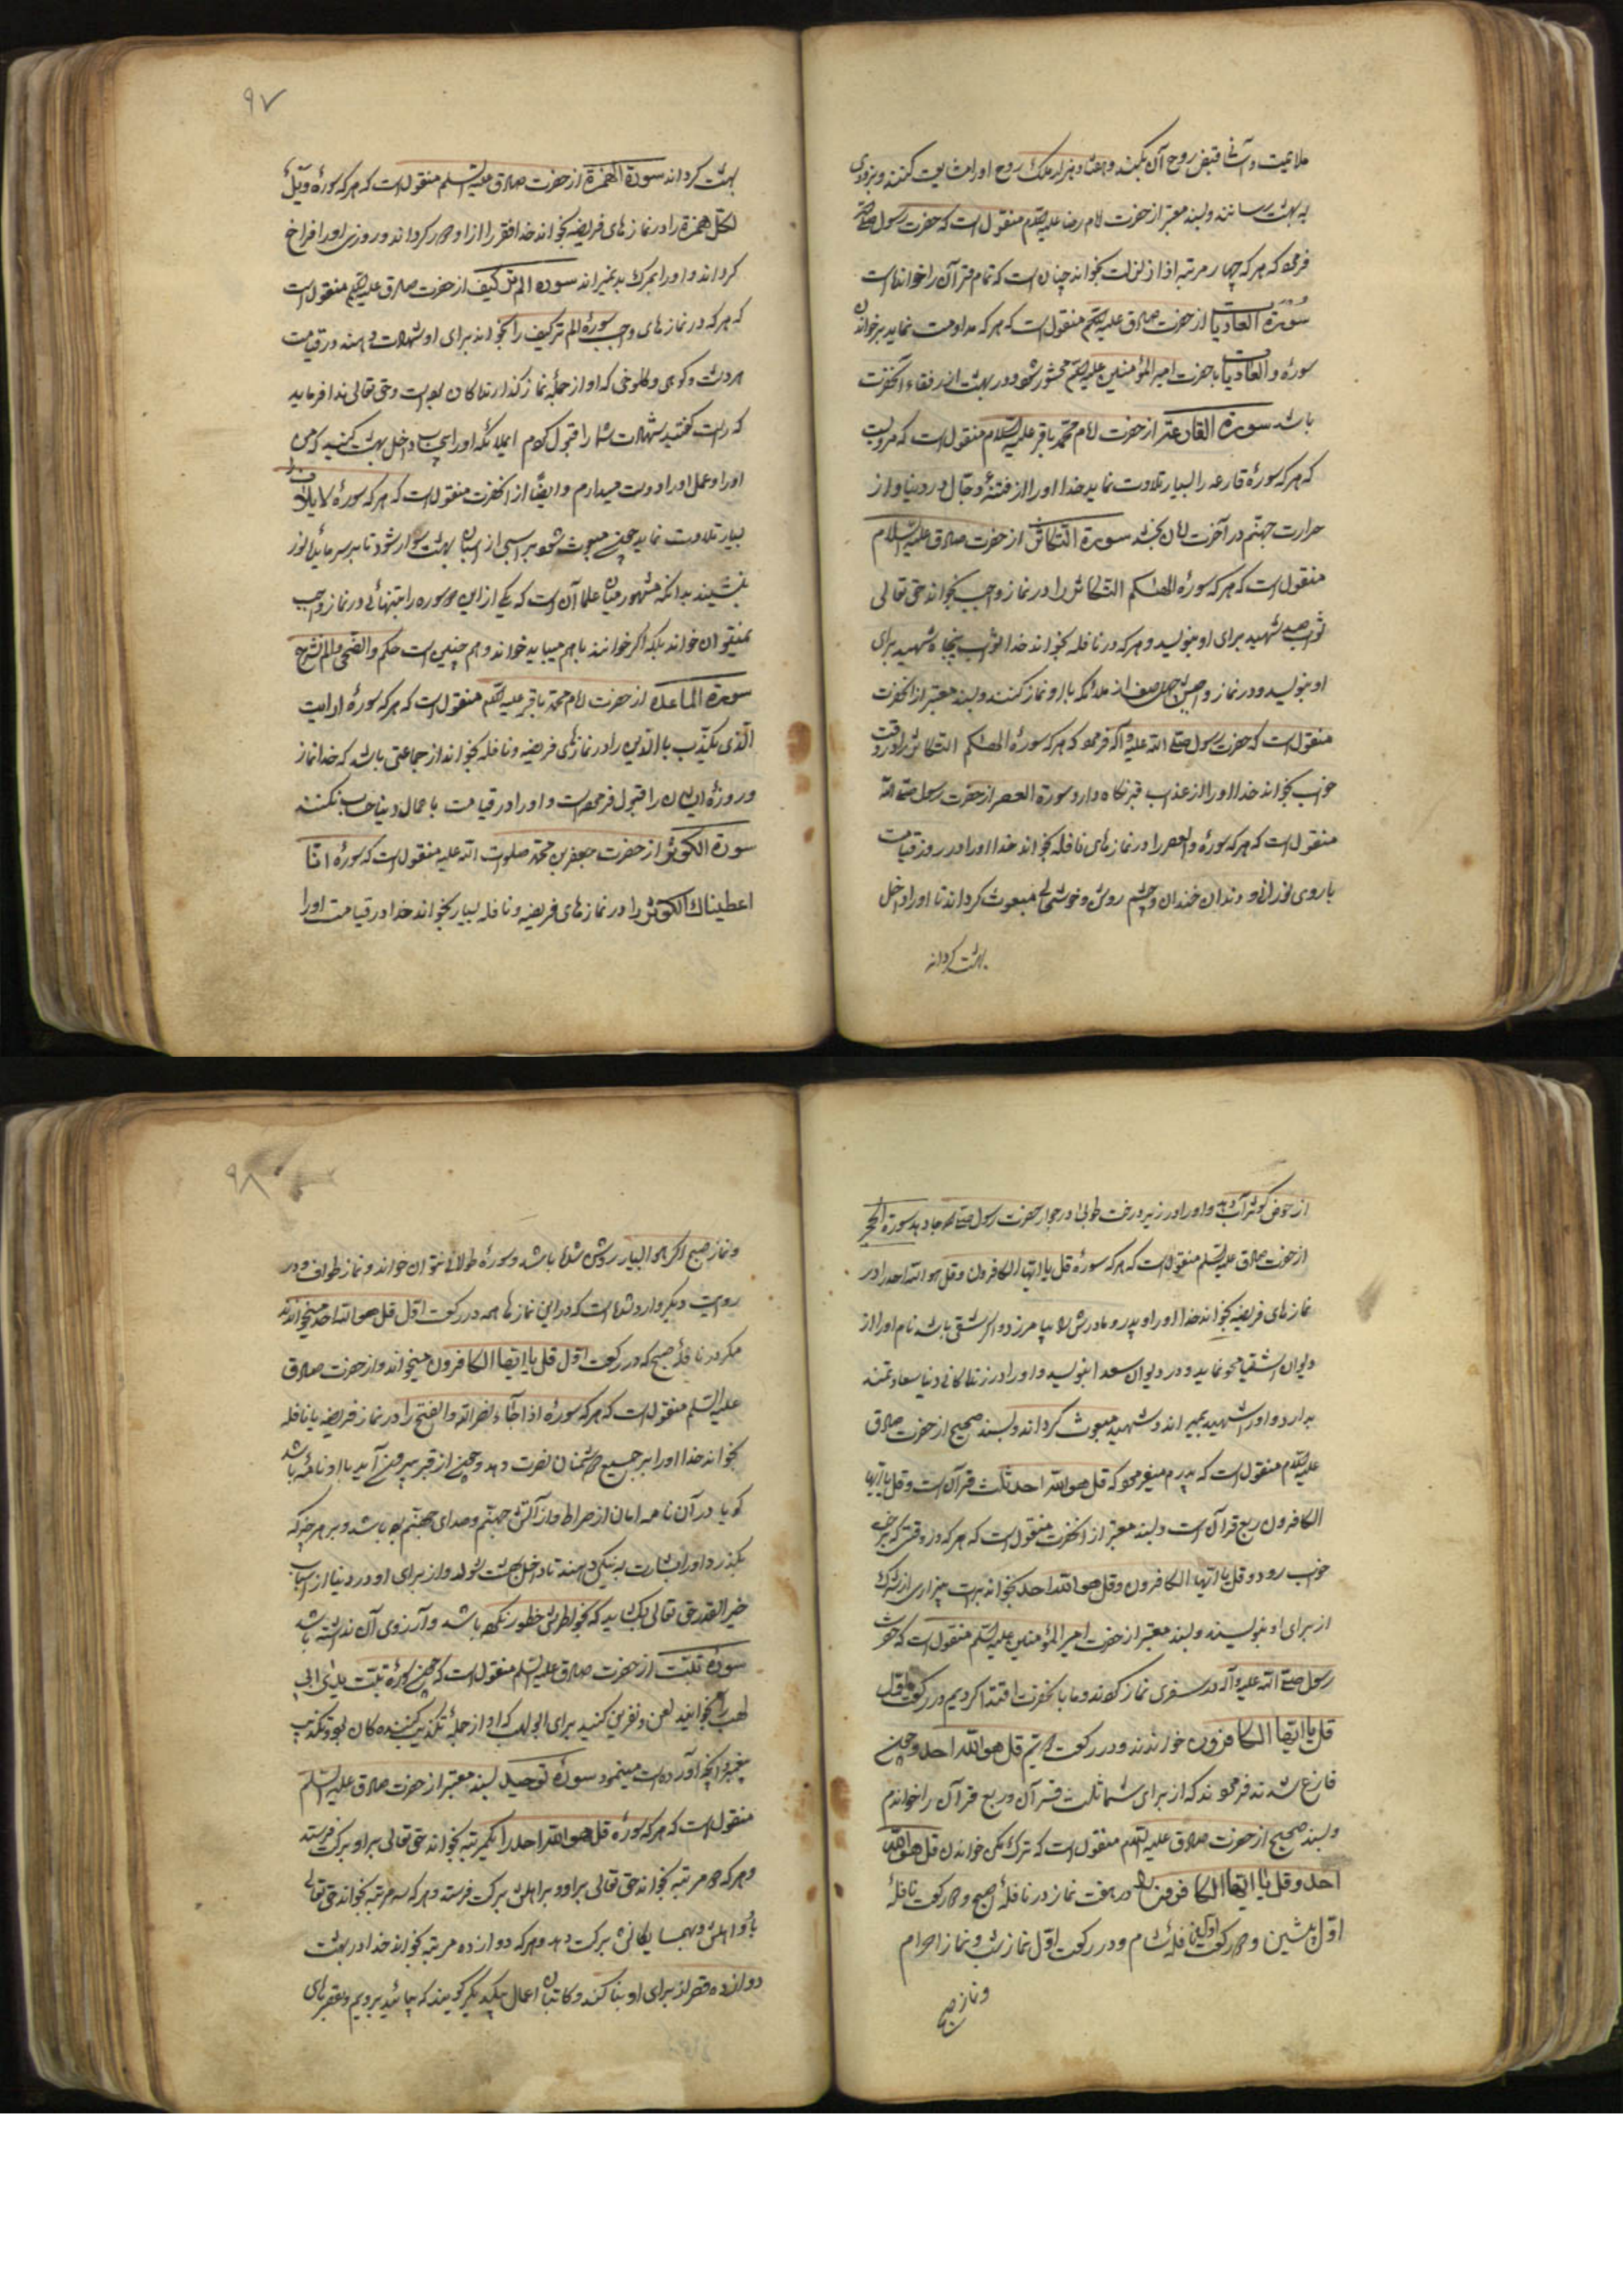 ملایمت و آسانی قبض روح آن بکنند و هفتاد هزار ملک روح او را مشایعت کنند و بزودی
به بهشت رسانند و بسند معتبر از حضرت امام رضا علیه السلام منقول است که حضرت رسول
فرمود که هر که چهار مرتبه اذا زلزلت بخواند چنان است که تمام قرآن را خوانده است
سورة العادیات از حضرت صادق علیه السلام منقول است که هر که مداومت نماید بر خواندن
سورهٔ والعادیات با حضرت امیر المؤمنین علیه السلام محشور شود و در بهشت از رفقاء آنحضرت
باشد سورة القارعة از حضرت امام محمد باقر علیه السلام منقول است که
که هر که سورهٔ قارعه را بسیار تلاوت نماید خدا او را از فتنهٔ دجال در دنیا و از
حرارت جهنم در آخرت امان بخشد سورة التکاثر از حضرت صادق علیه السلام
منقول است که هر که سورهٔ الهیکم التکاثر را در نماز واجب بخواند حق تعالی
ثواب صد شهید برای او بنویسد و هر که در نافله بخواند خدا ثواب پنجاه شهید برای
او بنویسد و در نماز واجب چهل صف از ملائکه با او نماز کنند و بسند معتبر از آنحضرت
منقول است که حضرت رسول صلی الله علیه وآله فرمود که هر که سورهٔ الهیکم التکاثر را در وقت
خواب بخواند خدا او را از عذاب قبر نگاه دارد سورة العصر از حضرت رسول صلی الله
منقول است که هر که سورهٔ والعصر را در نمازهای نافله بخواند خدا او را در روز قیامت
با روی نورانی و دندان خندان و چشم روشن و خوشحال مبعوث کرداند تا او را داخل
بهشت کرداند
۹۷
بهشت کرداند سورة الهمزة از حضرت صادق علیه السلم منقول است که هر که سورهٔ ویل
لکل همزة را در نمازهای فریضه بخواند خدا فقر را از او دور کرداند و روزی او را فراخ
کرداند و او را بمرک بد نمیراند سوره الم تر کیف از حضرت صادق علیه السلم منقول است
که هر که در نمازهای واجب سورهٔ الم تر کیف را بخواند برای او شهادت دهند در قیامت
هر دشت و کوهی و کلوخی که او از جملهٔ نماز کذارندکان بوده است و حق تعالی ندا فرماید
که راست کفتید شهادت شما را قبول کردم ای ملائکه او را بی حساب داخل بهشت کنید که من
او را و عمل او را دوست میدارم و ایضا از آنحضرت منقول است که هر که سورهٔ لایلاف
بسیار تلاوت نماید چون مبعوث شود بر اسبی از اسبان بهشت سوار شود تا بر سر مائدهٔ نور
بنشیند بدانکه مشهور میان علما آن است که یکی از این دو سوره را بتنهائی در نماز واجب
نمیتوان خواند بلکه اکر خوانند با هم میباید خواند و هم چنین است حکم والضحی والم نشرح
سورة الماعده از حضرت امام محمد باقر علیه السلم منقول است که هر که سورهٔ ارایت
الذی یکذب بالدین را در نمازهای فریضه و نافله بخواند از جماعتی باشد که خدا نماز
و روزهٔ ایشان را قبول فرموده است و او را در قیامت با عمال دنیا حساب نکنند
سورة الکوثر از حضرت جعفر بن محمد صلوات الله علیه منقول است که سورهٔ انا
اعطیناک الکوثر را در نمازهای فریضه و نافله بسیار بخواند خدا در قیامت او را
از حوض کوثر آب دهد و او را در زیر درخت طوبی در جوار حضرت رسول صلی الله جا دهد سورة الجحد
از حضرت صادق علیه السلم منقول است که هر که سورهٔ قل یا ایها الکافرون و قل هو الله احد را در
نمازهای فریضه بخواند خدا او را و پدر و مادرش را بیامرزد و اکر شقی باشد نام او را از
دیوان اشقیا محو نماید و در دیوان سعدا بنویسد و او را در زندکانی دنیا سعادتمند
بدارد و او را شهید بمیراند و شهید مبعوث کرداند و بسند صحیح از حضرت صادق
علیه السلام منقول است که پدرم میفرمود که قل هو الله احد ثلث قرآن است و قل یا ایها
الکافرون ربع قرآن است و بسند معتبر از آنحضرت منقول است که هر که در وقتی که برخت
خواب رود و قل یا ایها الکافرون و قل هو الله احد بخواند برات بیزاری از شرک
از برای او بنویسند و بسند معتبر از حضرت امیر المؤمنین علیه السلم منقول است که حضرت
رسول صلی الله علیه وآله در سفری نماز کردند و ما بآنحضرت اقتدا کردیم در رکعت اول
قل یا ایها الکافرون خواندند و در رکعت دویم قل هو الله احد و چون
فارغ شدند فرمودند که از برای شما ثلث قرآن و ربع قرآن را خواندم
و بسند صحیح از حضرت صادق علیه السلم منقول است که ترک مکن خواندن قل هو الله
احد و قل یا ایها الکافرون را در هفت نماز در نافلهٔ صبح و دو رکعت نافلهٔ
اول پیشین و دو رکعت اول نافلهٔ شام و در رکعت اول نماز شب و نماز احرام
و نماز صبح
۹۸
و نماز صبح اکر هوا بسیار روشن شده باشد و سورهٔ طولانی نتوان خواند و نماز طواف و در
روایت دیکر وارد شده است که در این نمازها همه در رکعت اول قل هو الله احد میخوانند
مکر در نافلهٔ صبح که در رکعت اول قل یا ایها الکافرون میخواند و از حضرت صادق
علیه السلم منقول است که هر که سورهٔ اذا جاء نصر الله والفتح را در نماز فریضه یا نافله
بخواند خدا او را بر جمیع دشمنان نصرت دهد و چون از قبر بیرون آید با او نامهٔ باشد
که یا در آن نامه امان از صراط و از آتش جهنم و صدای جهنم بوده باشد و بر هر چیز که
بکذرد او را بشارت به نیکی دهند تا داخل بهشت شود و از برای او در دنیا از اسباب
خیر القدر حق تعالی بکشاید که بخاطرش خطور نکرده باشد و آرزوی آن نداشته باشد
سورهٔ تبت از حضرت صادق علیه السلم منقول است که چون سورهٔ تبت یدا ابی
لهب را بخوانید لعن و نفرین کنید برای ابولهب که او از جملهٔ تکذیب کننده کان بود و تکذیب
پیغمبر و آنچه آورده است مینمود سورهٔ توحید بسند معتبر از حضرت صادق علیه السلم
منقول است که هر که سورهٔ قل هو الله احد را یکمرتبه بخواند حق تعالی بر او برکت فرستد
و هر که دو مرتبه بخواند حق تعالی بر او و بر اهلش برکت فرستد و هر که سه مرتبه بخواند حق تعالی
باو و اهلش و همسایکانش برکت دهد و هر که دوازده مرتبه بخواند خدا در بهشت
دوازده قصر از برای او بنا کند و کاتبان اعمال بیکدیکر کویند که بیائید برویم و قصرهای